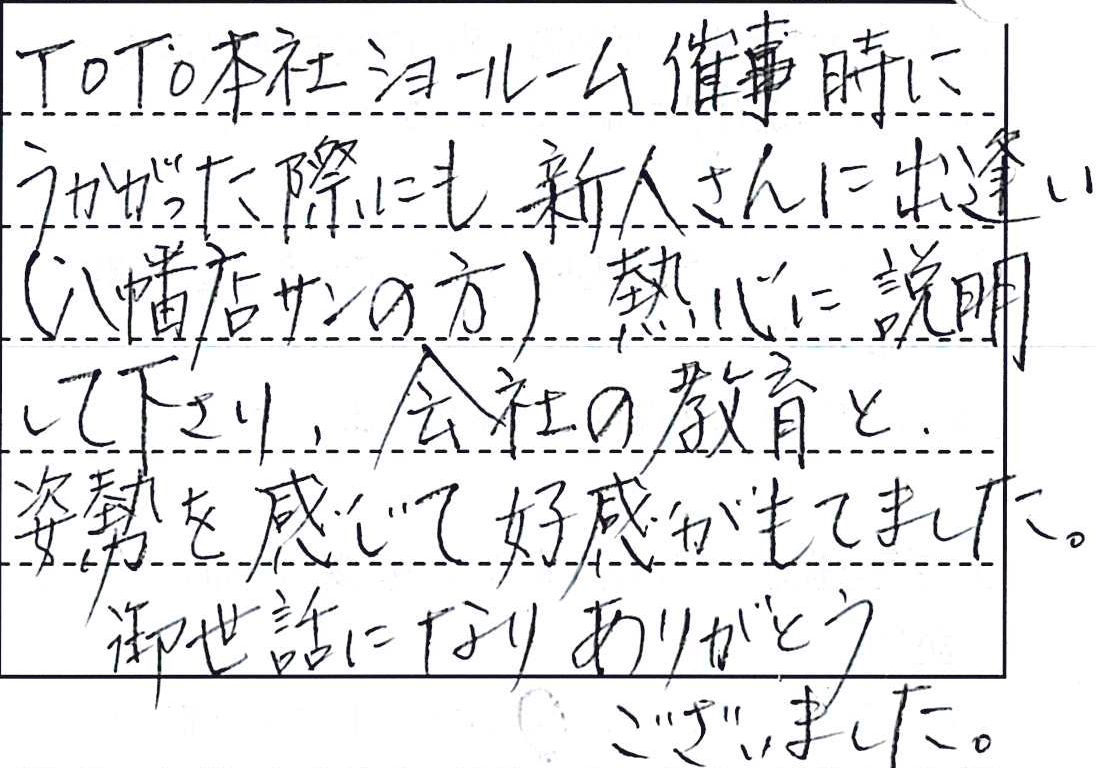 TOTO本社ショールーム催事時に
うかがった際にも新人さんに出逢い
(八幡店サンの方)熱心に説明
して下さり、会社の教育と、
姿勢を感じて好感がもてました。
御世話になりありがとう
ございました。